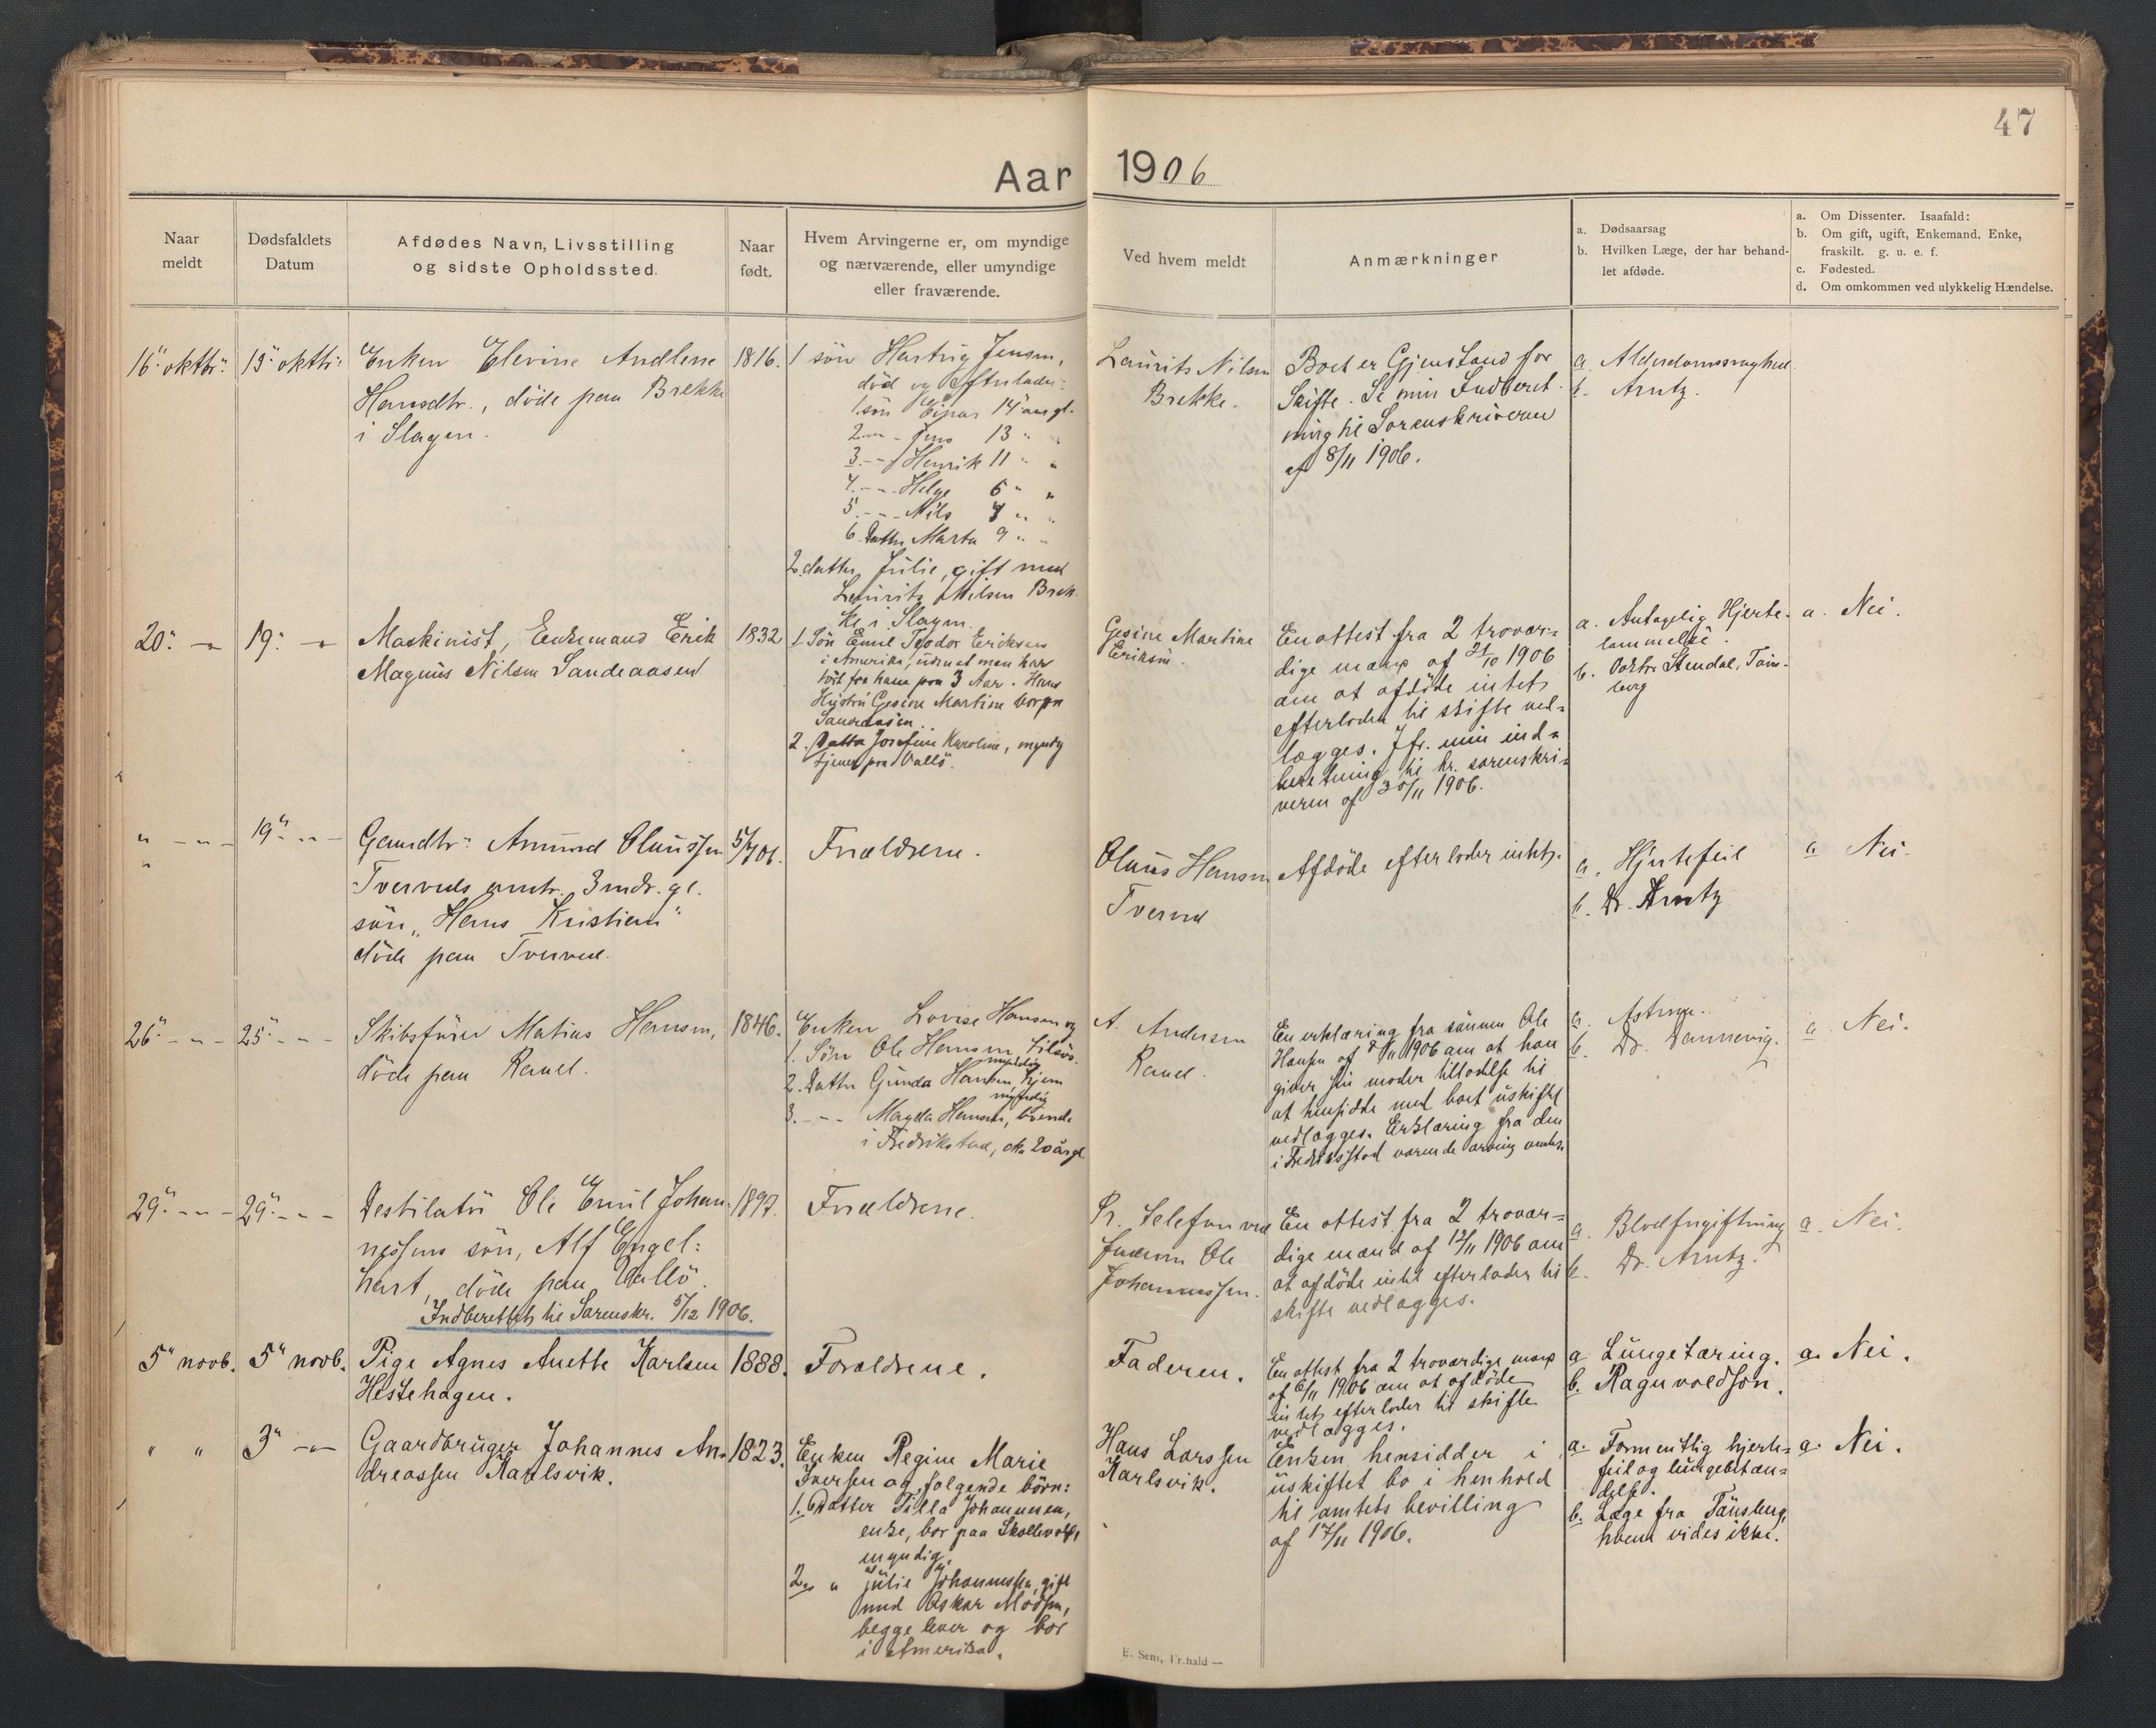 47
Aar 1906
Naar
meldt
Dødsfaldets
Datum
Afdødes Navn, Livsstilling
og sidste Opholdssted.
Naar
født.
Hvem Arvingerne er, om myndige
og nærværende, eller umyndige
eller fraværende.
Ved hvem meldt
Anmærkninger
a. Dødsaarsag
b. Hvilken Læge, der har behand-
let afdøde.
a. Om Dissenter. Isaafald:
b. Om gift, ugift, Enkemand, Enke,
fraskilt. g. u. e. f.
c. Fødested.
d. Om omkommen ved ulykkelig Hændelse.
16" oktbr:
15" oktbr:
Enken Elevine Andlene
Hansdtr., döde paa Brekke
i Slagen.
1816.
1 sön Hartvig Jensen,
död og efterlader:
1. sön Einar 14 aar gl.
2 -"- - Jens 13 " "
3. - - Henrik 11 " "
4. - - - Helge 6 " "
5. - - - Nils 4 " "
6. Datter Marta 9 " "
2. datter Julie, gift med
Laurits Nilsen Brek-
ke i Slagen.
Laurits Nilsen
Brekke.
Boet er Gjenstand for
Skifte. Se min Indberet-
ning til Sorenskriveren
af 8/11 1906.
a. Alderdomssvaghed.
b. Arntz.
20: -"-
19: -"-
Maskinist, Enkemand Erik
Magnus Nilsen Sandeaasen
1832
1. Sön Emil Teodor Eriksen
i Amerika, uden at man har
hört fra ham paa 3 Aar. Hans
Hustru Gesine Martine bor paa
Sandeaasen.
2. Datter Josefine Karoline, myndig
tjener paa Vallö.
Gesine Martine
Eriksen.
En attest fra 2 trovær=
dige mænd af 21/10 1906
om at afdöde intet
efterlader til skifte ved=
lægges. Jfr. min ind=
beretning til hr. sorenskri=
veren af 30/11 1906.
a. Antagelig Hjerte-
lammelse.
b. Doktor Stendal, Töns-
berg
a. Nei.
" - " -
19" - " -
Gaardbr: Amund Olaussen
Tverveds omtr. 3 mdr. gl.
sön, "Hans Kristian"
döde paa Tverved.
5/7 06.
Forældrene.
Olaus Hansen
Tverved
Afdöde efterlader intet.
a. Hjertefeil
b. Dr. Arntz
a Nei.
26" - " -
25" - " -
Skibsförer Matias Hansen,
döde paa Ramel.
1846.
Enken Lovise Hansen og
1. Sön Ole Hansen, tilsös.
myndig
2. Datter Gunda Hansen, hjem
myndig
3. - - Magda Hansen, boende
i Fredrikstad, cka 20 år gl.
A. Andersen
Ramel.
En erklæring fra sönnen Ole
Hansen af 8/11 1906 om at han
giver sin moder tilladelse til
at hensidde med boet uskiftet
vedlægges. Erklæring fra den
i Fredrikstad værende arving
a.
b. Dr. Dannevig.
a. Nei.
29" - " -
29" - " -
Destilatör Ole Emil Johan-
nessens sön, Alf Engel:
hart, döde paa Vallö.
Indberettet til Sorenskr. 5/12 1906.
1897.
Forældrene.
Pr. Telefon ved
Faderen Ole
Johannessen.
En attest fra 2 trovær=
dige mænd af 12/11 1906 om
at afdöde intet efterlader til
skifte vedlægges.
a. Blodforgiftning
b. Dr. Arntz.
a. Nei.
5" novb.
5" novb.
Pige Agnes Anette Karlsen
Hestehagen.
1888.
Foraldrene.
Faderen.
En attest fra 2 troværdige mænd
af 6/11 1906 om at afdöde
intet efterlader til skifte
vedlægges.
a Lungetæring.
b. Ragnvaldson.
a. Nei.
" "
3" -"-
Gaardbruger Johannes An-
dreassen Karlsvik.
1823.
Enken Regine Marie
Iversen og fölgende börn:
1. Datter Tilla Johannesen,
enke, bor paa
myndig.
2. " Julie Johannessen, gift
med Oskar Madsen,
begge lever og bor
i Amerika.
Hans Larssen
Karlsvik.
Enken hensidder i
uskiftet bo i henhold
til amtets bevilling
af 17/11 1906.
a. Formentlig hjerte=
feil og lungebetæn-
delse.
b. Læge fra Tönsberg,
hvem vides ikke.
a. Nei.
E. Sem, Fr.hald —